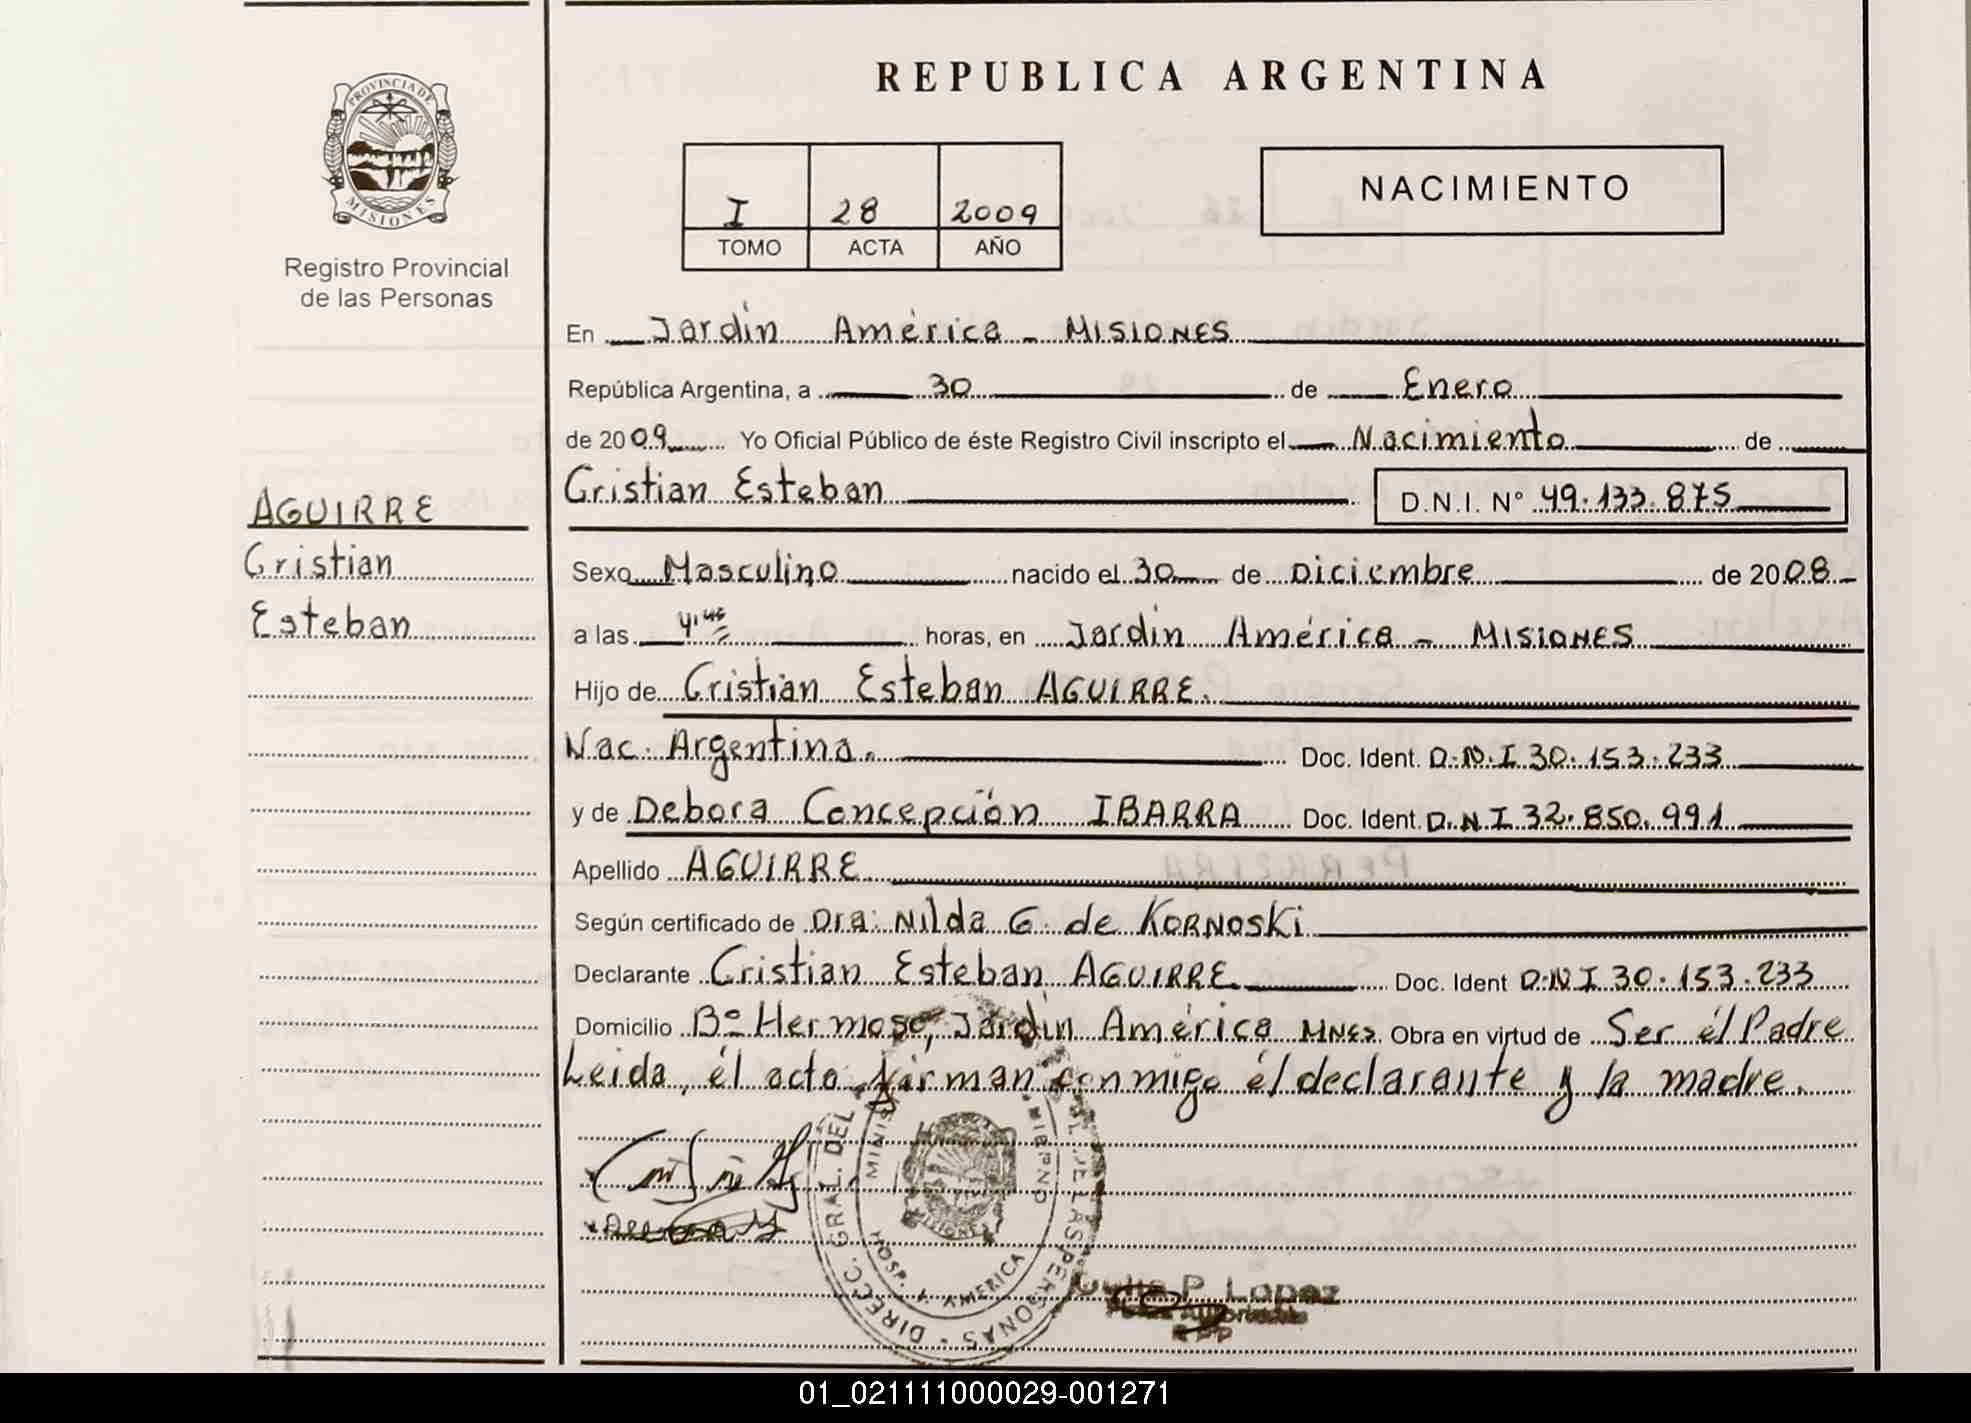 REPUBLICA ARGENTINA
PROVINCIA DE
MISIONES
Registro Provincial
de las Personas
I 28 2009
TOMO ACTA AÑO
NACIMIENTO
En Jardín América - MISIONES
República Argentina, a 30 de Enero
de 2009 Yo Oficial Público de éste Registro Civil inscripto el Nacimiento de
Cristian Esteban D.N.I. Nº 49.133.875
AGUIRRE
Cristian
Esteban
Sexo Masculino nacido el 30 de Diciembre de 2008
a las horas, en Jardín América - MISIONES
Hijo de Cristian Esteban AGUIRRE.
Nac. Argentina. Doc. Ident. D.N.I 30.153.233
y de Debora Concepción IBARRA Doc. Ident. D.N.I 32.850.991
Apellido AGUIRRE
Según certificado de Dra. Nilda G. de KORNOSKi
Declarante Cristian Esteban AGUIRRE Doc. Ident D.N.I 30.153.233
Domicilio Bº Hermoso, Jardín América MNES. Obra en virtud de Ser él Padre
Leida, él acto firman conmigo él declarante y la madre.
DIRECC. GRAL. DEL DE LAS PERSONAS
HOSP. J. AMERICA
P. Lopez
01_021111000029-001271